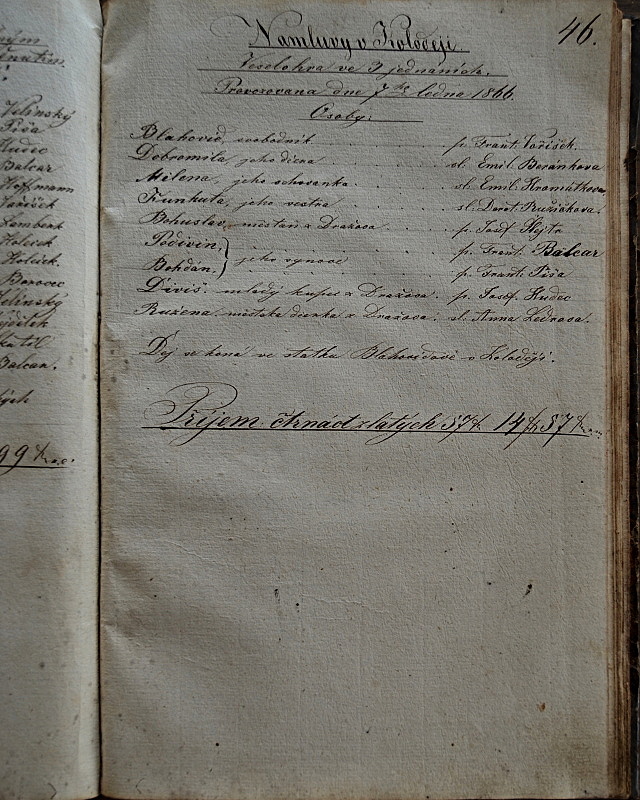 46.
Namluvy v Koloději.
Veselohra ve 3 jednáních.
Provozována dne 7ho ledna 1866.
Osoby:
Blahovid, svobodník p. Frant. Vařišek.
Dobromila, jeho dcera sl. Emil. Beránkova
Milena, jeho schovanka. sl. Emil. Hromátkova
Kunhuta, jeho sestra sl. Dorot.Ružičkova.
Bohuslav, měšťan z Dražova p. Josf. Hejtz
Podivín, p. Frant. Balcar
jeho synové
Bohdan, p. Frant. Píša
Diviš, mladý kupec z Dražova. p. Josef. Hudec
Ružena, městská dívka z Dražova. sl. Anna Ledrova.
Děj se koná ve statku Blahovidově v Koloději.
Příjem čtrnáct zlatých 57 k. 14 f 57 k
Velinský
Píša
Hudec
Balcar
Hoffmann
Vařišek
Lambert
Holeček
Holeček.
Borovec
Velinský
Balcar.
99 k